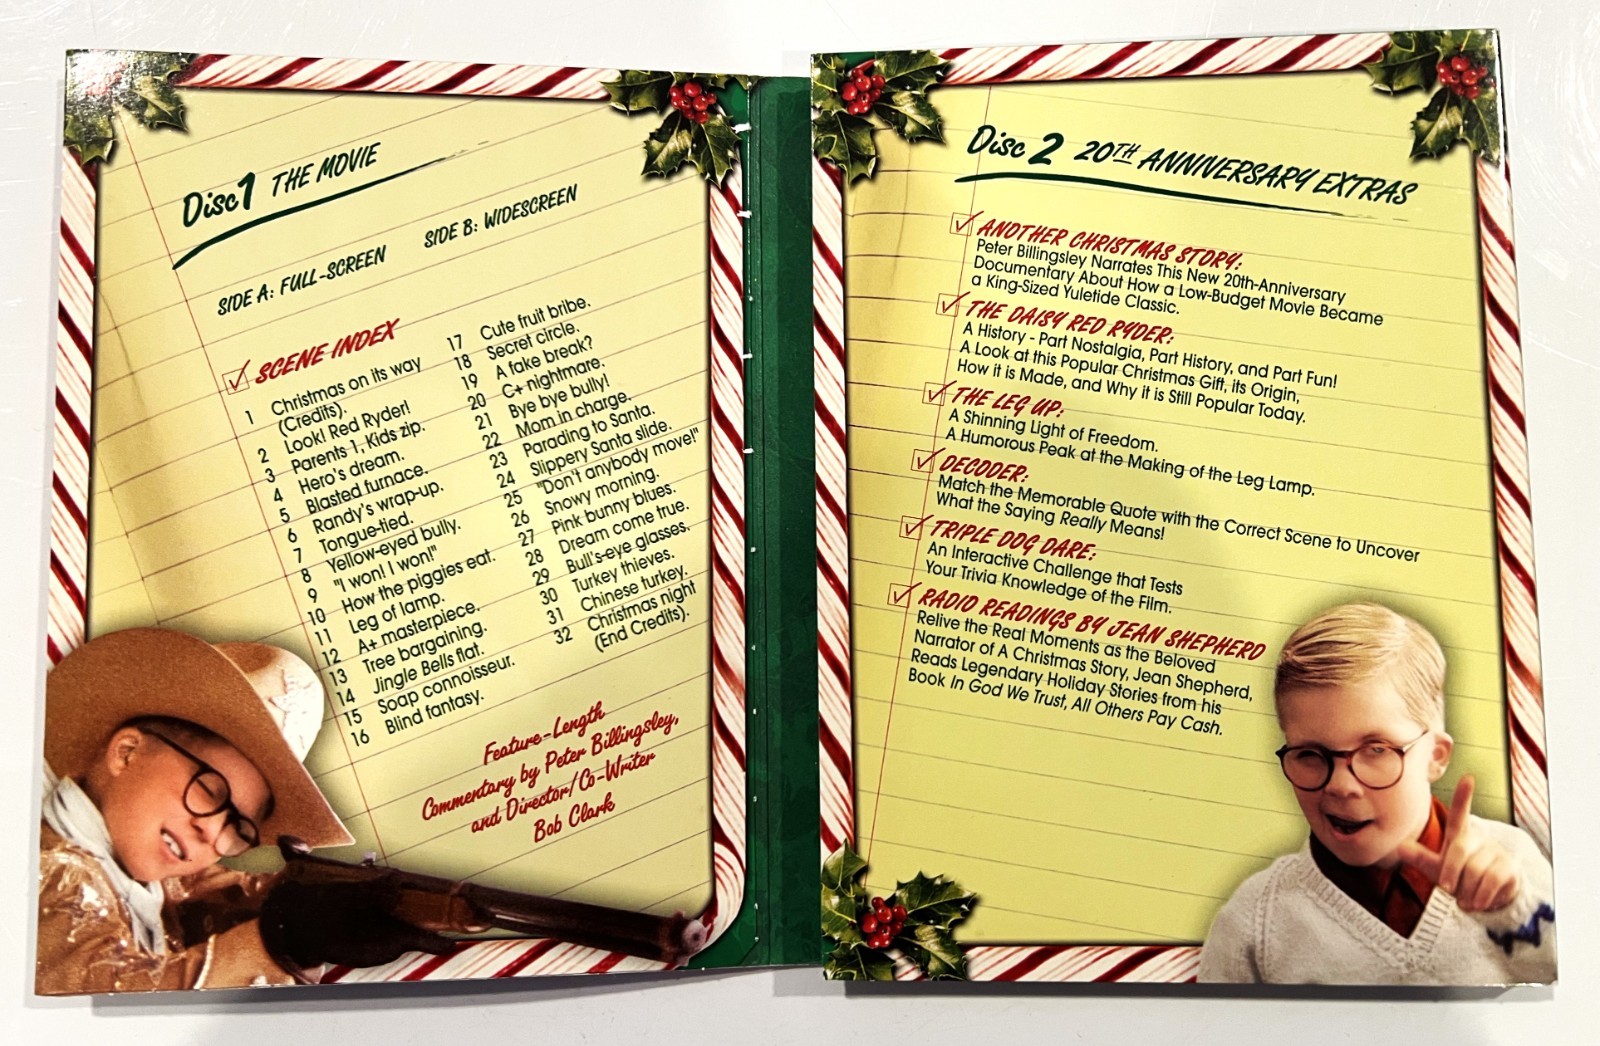 Disc 1 THE MOVIE
SIDE A: FULL-SCREEN SIDE B: WIDESCREEN
SCENE INDEX
1 Christmas on its way
(Credits).
2 Look! Red Ryder!
3 Parents 1, Kids zip.
4 Hero's dream.
5 Blasted furnace.
6 Randy's wrap-up.
7 Tongue-tied.
8 Yellow-eyed bully.
9 "I won! I won!"
10 How the piggies eat.
11 Leg of lamp.
12 A+ masterpiece.
13 Tree bargaining.
14 Jingle Bells flat.
15 Soap connoisseur.
16 Blind fantasy.
17 Cute fruit bribe.
18 Secret circle.
19 A fake break?
20 C+ nightmare.
21 Bye bye bully!
22 Mom in charge.
23 Parading to Santa.
24 Slippery Santa slide.
25 "Don't anybody move!"
26 Snowy morning.
27 Pink bunny blues.
28 Dream come true.
29 Bull's-eye glasses.
30 Turkey thieves.
31 Chinese turkey.
32 Christmas night
(End Credits).
Feature-Length
Commentary by Peter Billingsley,
and Director/Co-Writer
Bob Clark
Disc 2 20TH ANNIVERSARY EXTRAS
ANOTHER CHRISTMAS STORY:
Peter Billingsley Narrates This New 20th-Anniversary
Documentary About How a Low-Budget Movie Became
a King-Sized Yuletide Classic.
THE DAISY RED RYDER:
A History - Part Nostalgia, Part History, and Part Fun!
A Look at this Popular Christmas Gift, its Origin,
How it is Made, and Why it is Still Popular Today.
THE LEG UP:
A Shinning Light of Freedom.
A Humorous Peak at the Making of the Leg Lamp.
DECODER:
Match the Memorable Quote with the Correct Scene to Uncover
What the Saying Really Means!
TRIPLE DOG DARE:
An Interactive Challenge that Tests
Your Trivia Knowledge of the Film.
RADIO READINGS BY JEAN SHEPHERD
Relive the Real Moments as the Beloved
Narrator of A Christmas Story, Jean Shepherd,
Reads Legendary Holiday Stories from his
Book In God We Trust, All Others Pay Cash.